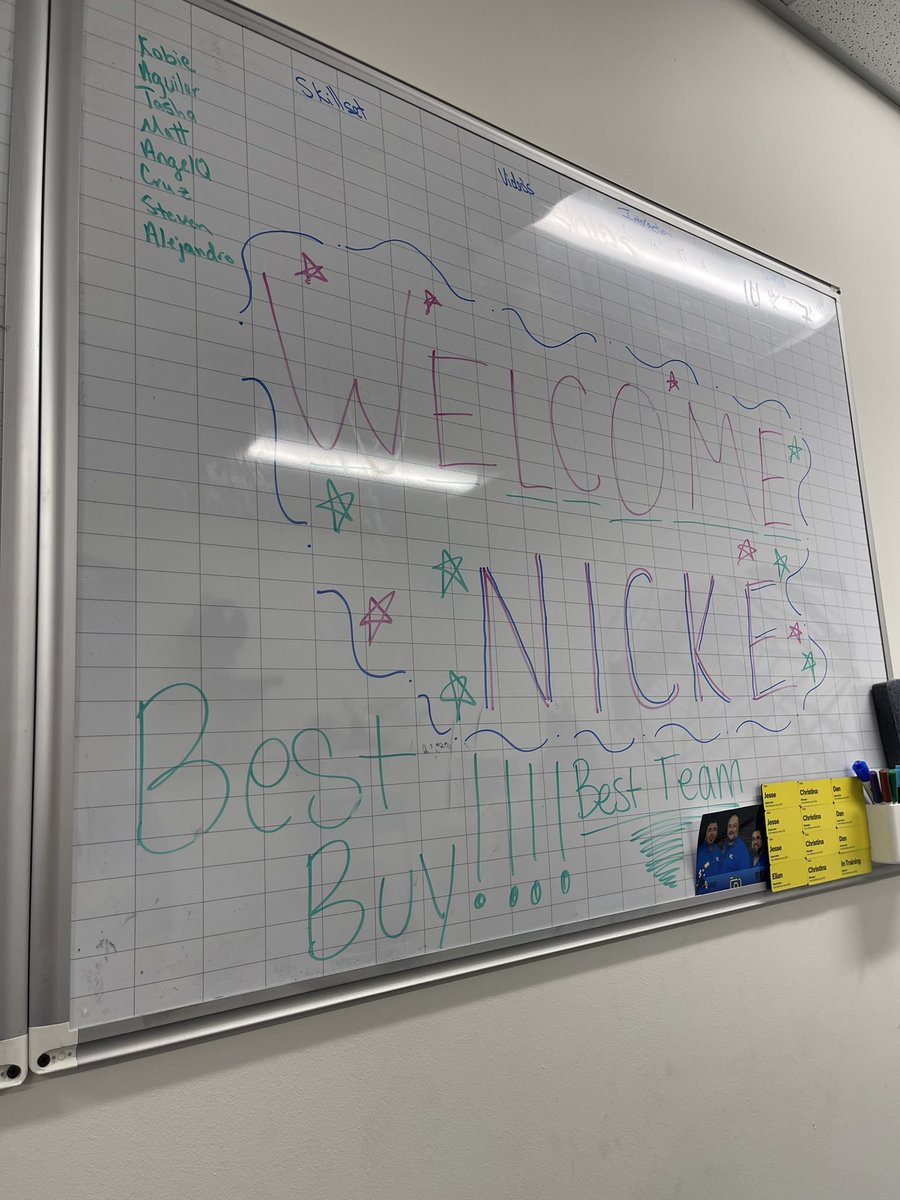 Kobie
Aguiler
Tasha
Matt
AngelO
Cruz
Steven
Alejandro
Skillset
Interaction
WELCOME
NICKE
Best
Buy!!!!
Best Team
Jesse Christina Dan
Jesse Christina Dan
Jesse Christina Dan
Elian Christina In Training